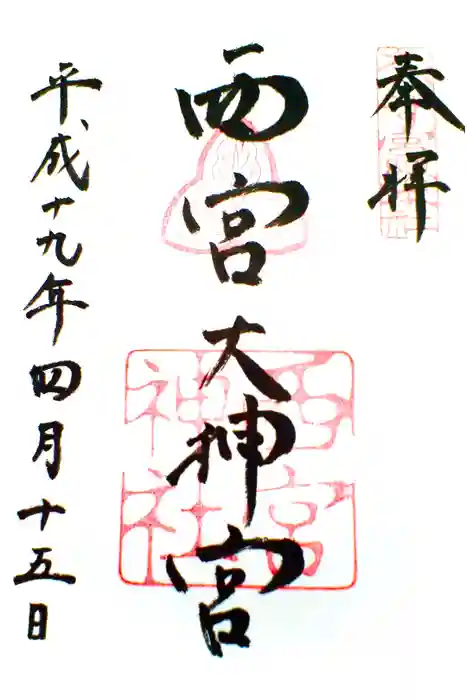 奉拝
西宮大神宮
西宮
神社
平成十九年四月十五日